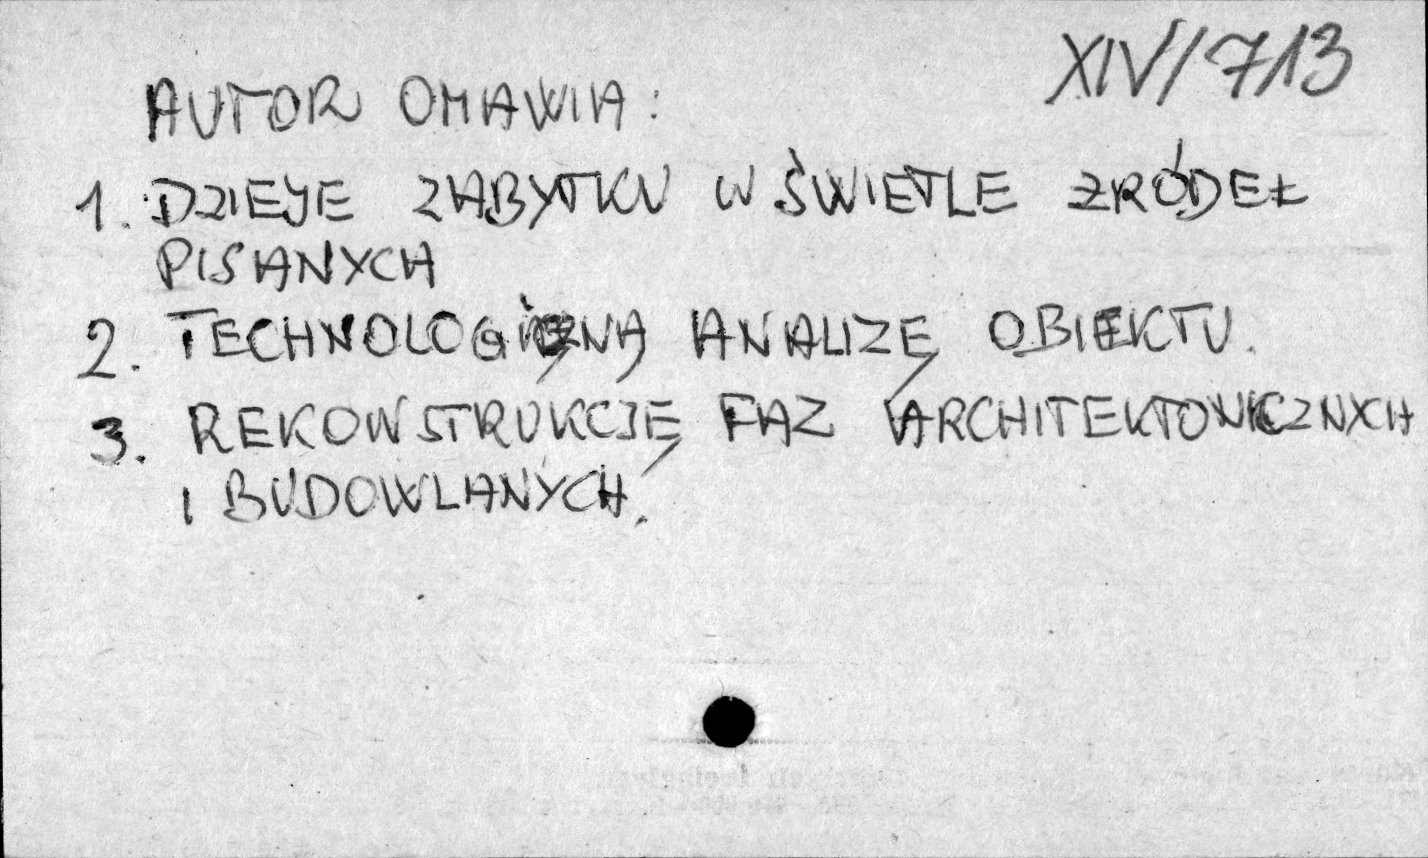 XIV/713
AUTOR OMAWIA:
1. DZIEJE ZABYTKU W ŚWIETLE ŹRÓDEŁ
PISANYCH
2. TECHNOLOGICZNĄ ANALIZĘ OBIEKTU.
3. REKONSTRUKCJĘ FAZ ARCHITEKTONICZNYCH
I BUDOWLANYCH.